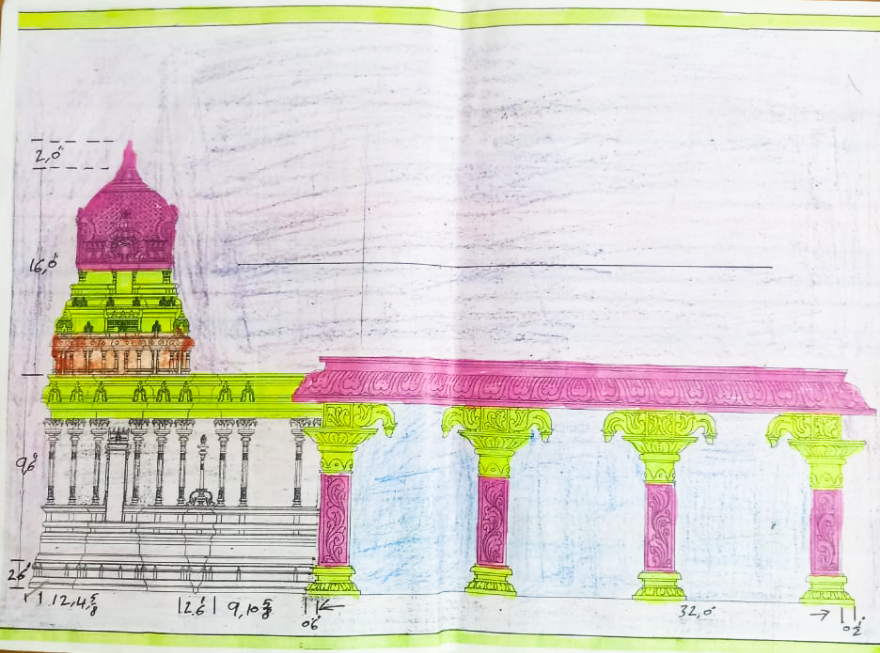 2,0"
16,0"
9,6"
2,6"
12,4,5/8
12,6"
9,10 5/8
0,6"
32,0"